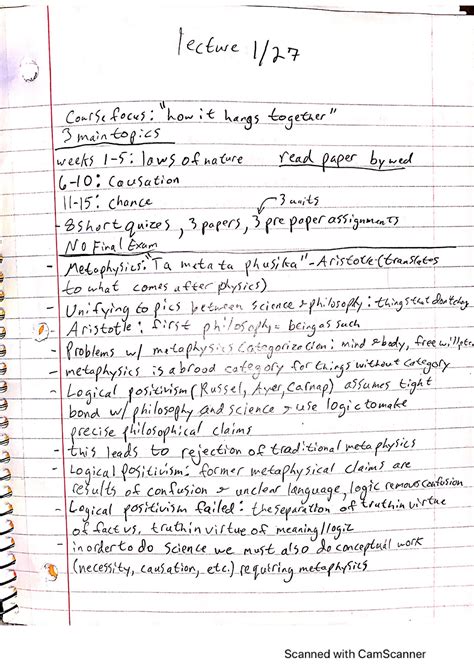 lecture 1/27
Course focus: "how it hangs together"
3 main topics
weeks 1-5: laws of nature read paper by wed
6-10: Causation
11-15: chance 3 units
- 8 short quizes, 3 papers, 3 pre paper assignments
No Final Exam
- Metaphysics: "Ta meta ta phusika" - Aristotle (translates
to what comes after physics)
- Unifying topics between science & philosophy: things that don't
- Aristotle: first philosophy = being as such
- Problems w/ metaphysics categorization: mind & body, free will, etc.
- metaphysics is a broad category for things without category
- Logical positivism (Russel, Ayer, Carnap) assumes tight
bond w/ philosophy and science & use logic to make
precise philosophical claims
- this leads to rejection of traditional metaphysics
- Logical positivism: former metaphysical claims are
results of confusion & unclear language, logic removes confusion
- Logical positivism failed: the separation of truth in virtue
of fact vs. truth in virtue of meaning/logic
- in order to do science we must also do conceptual work
(necessity, causation, etc.) requiring metaphysics
Scanned with CamScanner